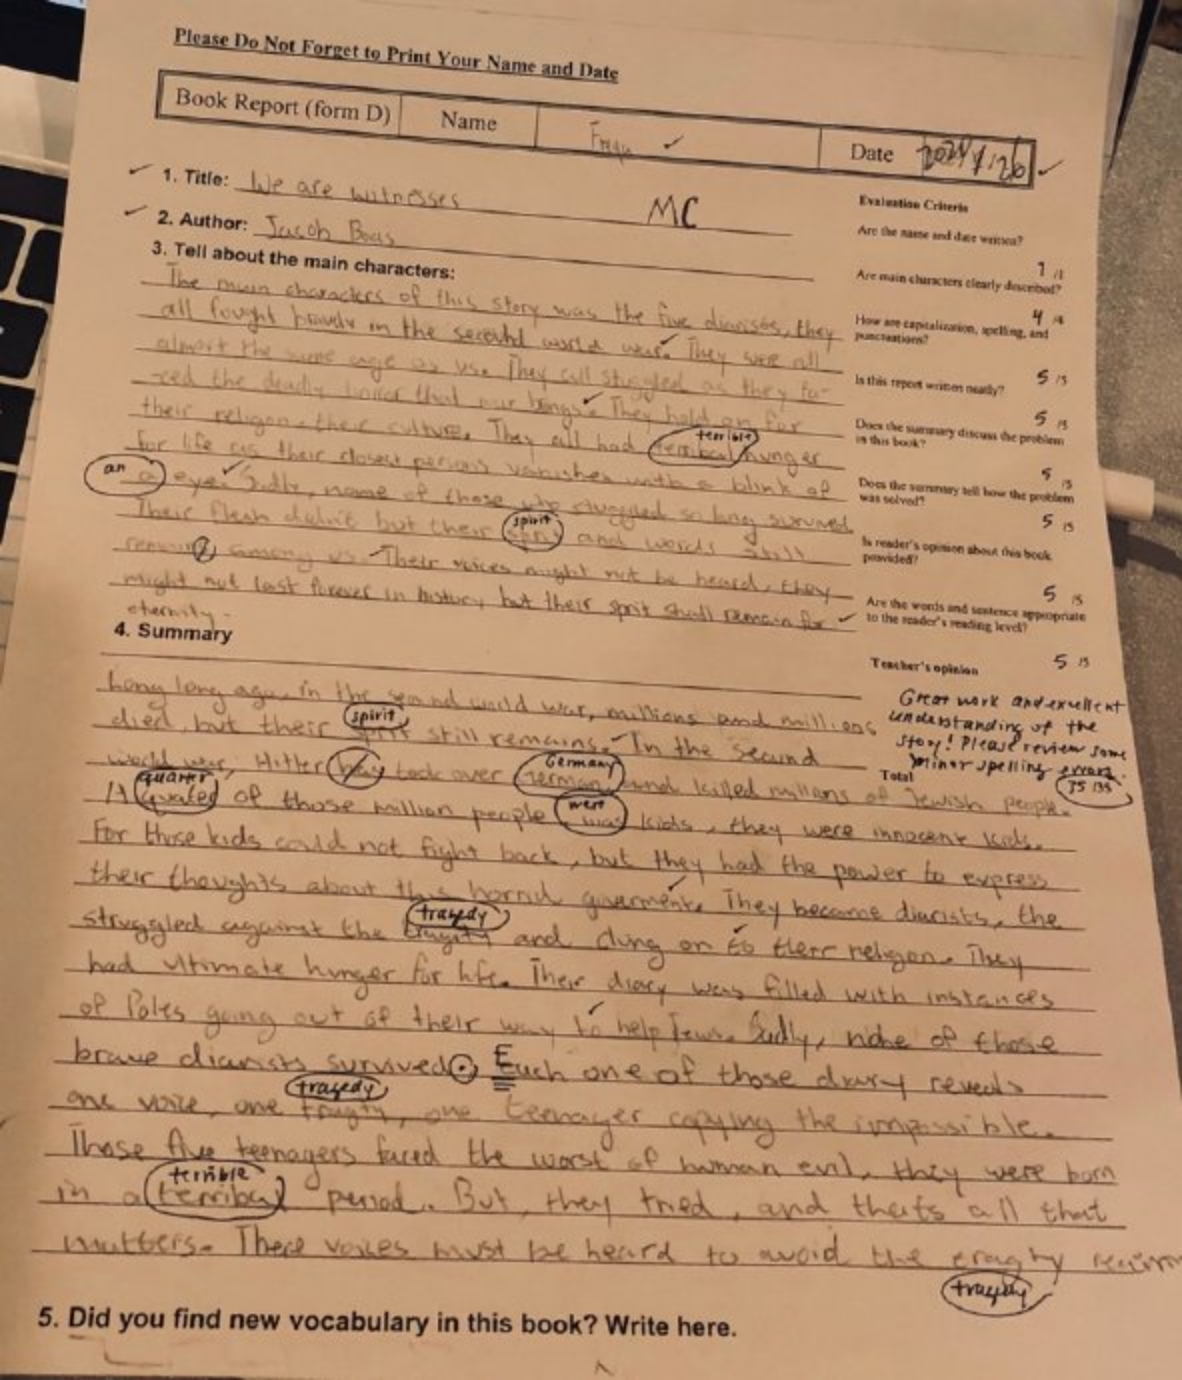 Please Do Not Forget to Print Your Name and Date
Book Report (form D) Name Date
1. Title: We are witnesses MC
2. Author: Jacob Boas
3. Tell about the main characters:
The main characters of this story was the five diarists, they
all fought bravely in the second world war. They were all
almost the same age as us. They all stuggled as they fa-
-ced the deadly that our brings. They hold on for
their religon, their culture. They all had terribal hunger
terrible
for life as their closest persons vanishes with a blink of
an
a eye. Sadly, none of those who struggled so long survived.
Their flesh didn't but their sprit and words still
spirit
remain among us. Their voices might not be heard, they
might not last forever in history, but their sprit shall remain for
eternity.
4. Summary
Long long ago, in the second world war, millions and millions
died, but their sprit still remains. In the second
spirit
world war, Hitler took over German and killed millions of Jewish people.
Germany
A of those million people was kids, they were innocent kids.
quarter were
For those kids could not fight back, but they had the power to express
their thoughts about this horrid goverment. They become diarists, the
struggled against the and clung on to their religon. They
tragedy
had ultimate hunger for life. Their diary was filled with instances
of Poles going out of their way to help Jews. Sadly, none of those
brave diarists survived. Each one of those diary reveals
one voice, one , one teenager copying the impossible.
tragedy
Those five teenagers faced the worst of human evil, they were born
in a terribal period. But, they tried, and thats all that
terrible
matters. There voices must be heard to avoid the
tragedy
5. Did you find new vocabulary in this book? Write here.
Evaluation Criteria
Are the name and date written?
1 /1
Are main characters clearly described?
4 /4
How are capitalization, spelling, and
punctuations?
5 /5
Is this report written neatly?
5 /5
Does the summary discuss the problem
in this book?
5 /5
Does the summary tell how the problem
was solved?
5 /5
Is reader's opinion about this book
provided?
5 /5
Are the words and sentence appropriate
to the reader's reading level?
5 /5
Teacher's opinion
Great work and excellent
understanding of the
story! Please review some
minor spelling errors.
Total
35 /35